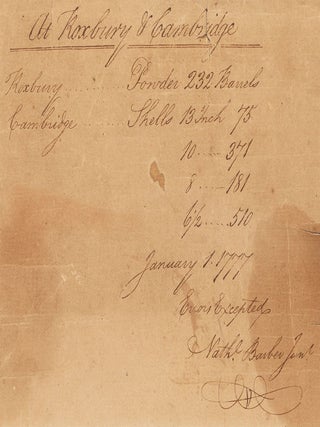 At Roxbury & Cambridge
Roxbury .......... Powder 232 Barrels
Cambridge ...... Shells 13 Inch 75
10 ..... 371
8 ..... 181
6½ ..... 510
January 1. 1777
Errors Excepted
Nathl. Barber Junr